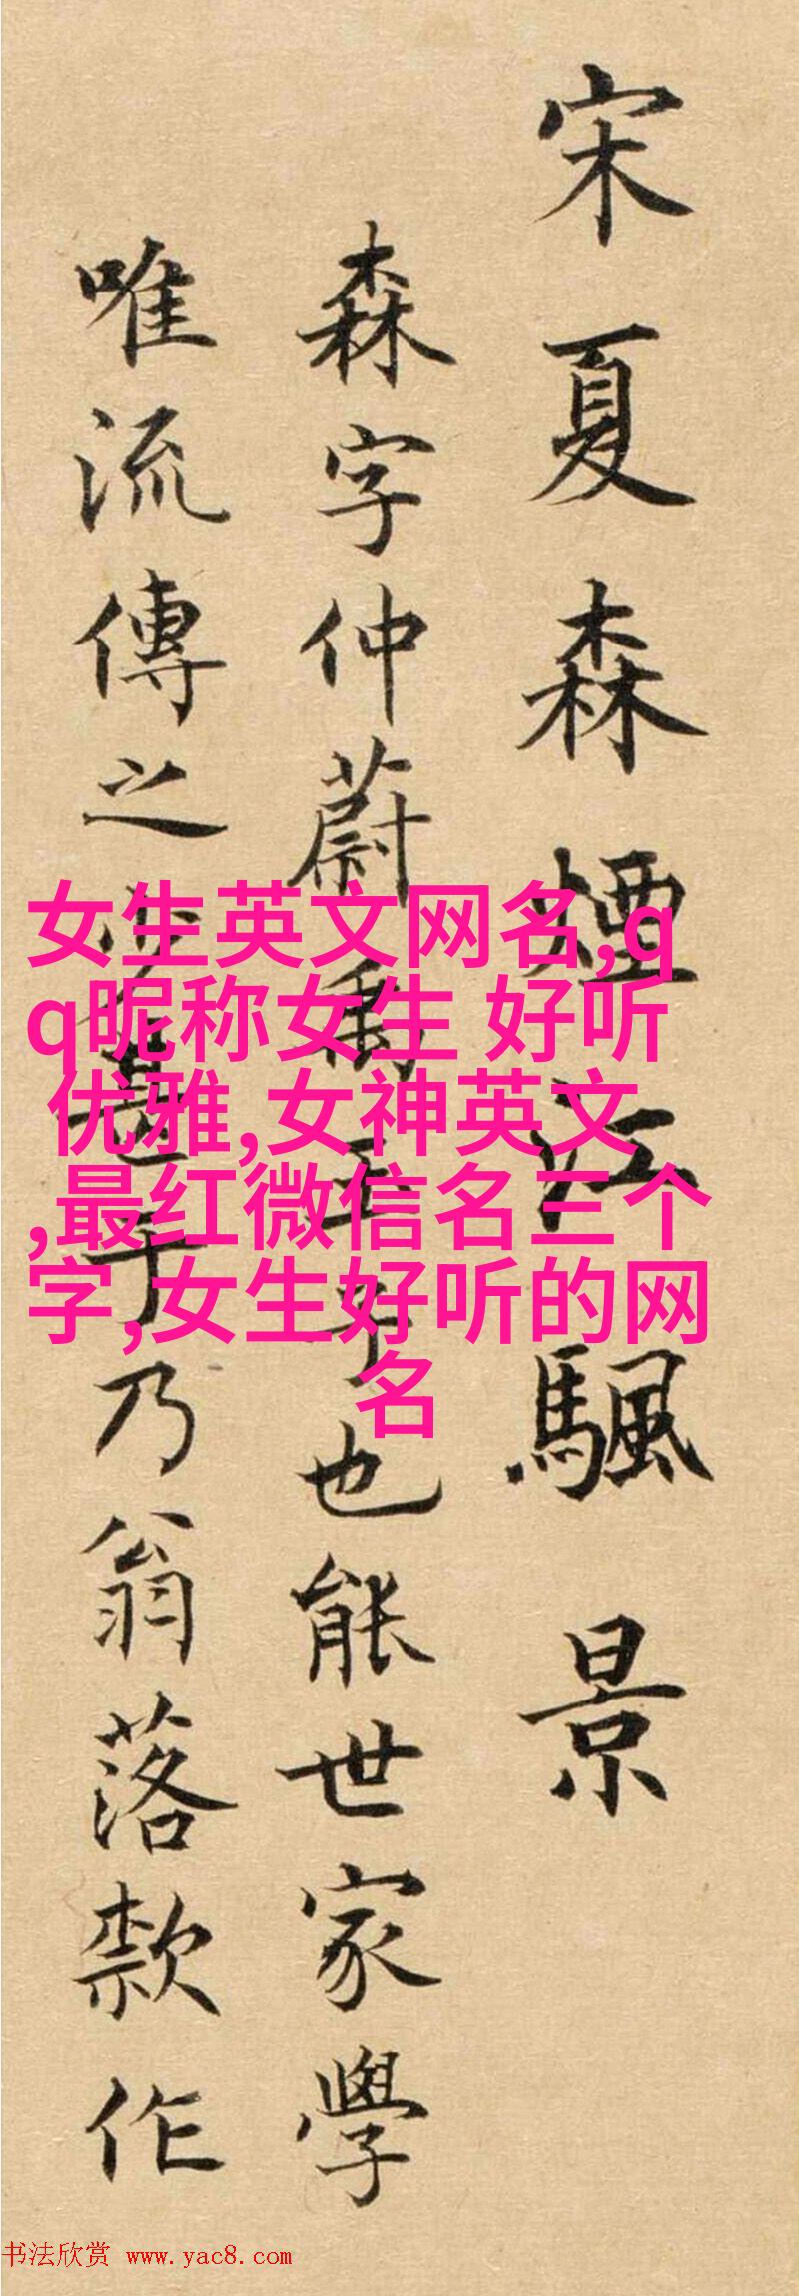 宋夏森煙江颿景
森字仲蔚禹玉子也能世家學
唯流傳之少甚于乃翁落款作
女生英文网名,q
q昵称女生 好听
优雅,女神英文
,最红微信名三个
字,女生好听的网
名
书法欣赏 www.yac8.com